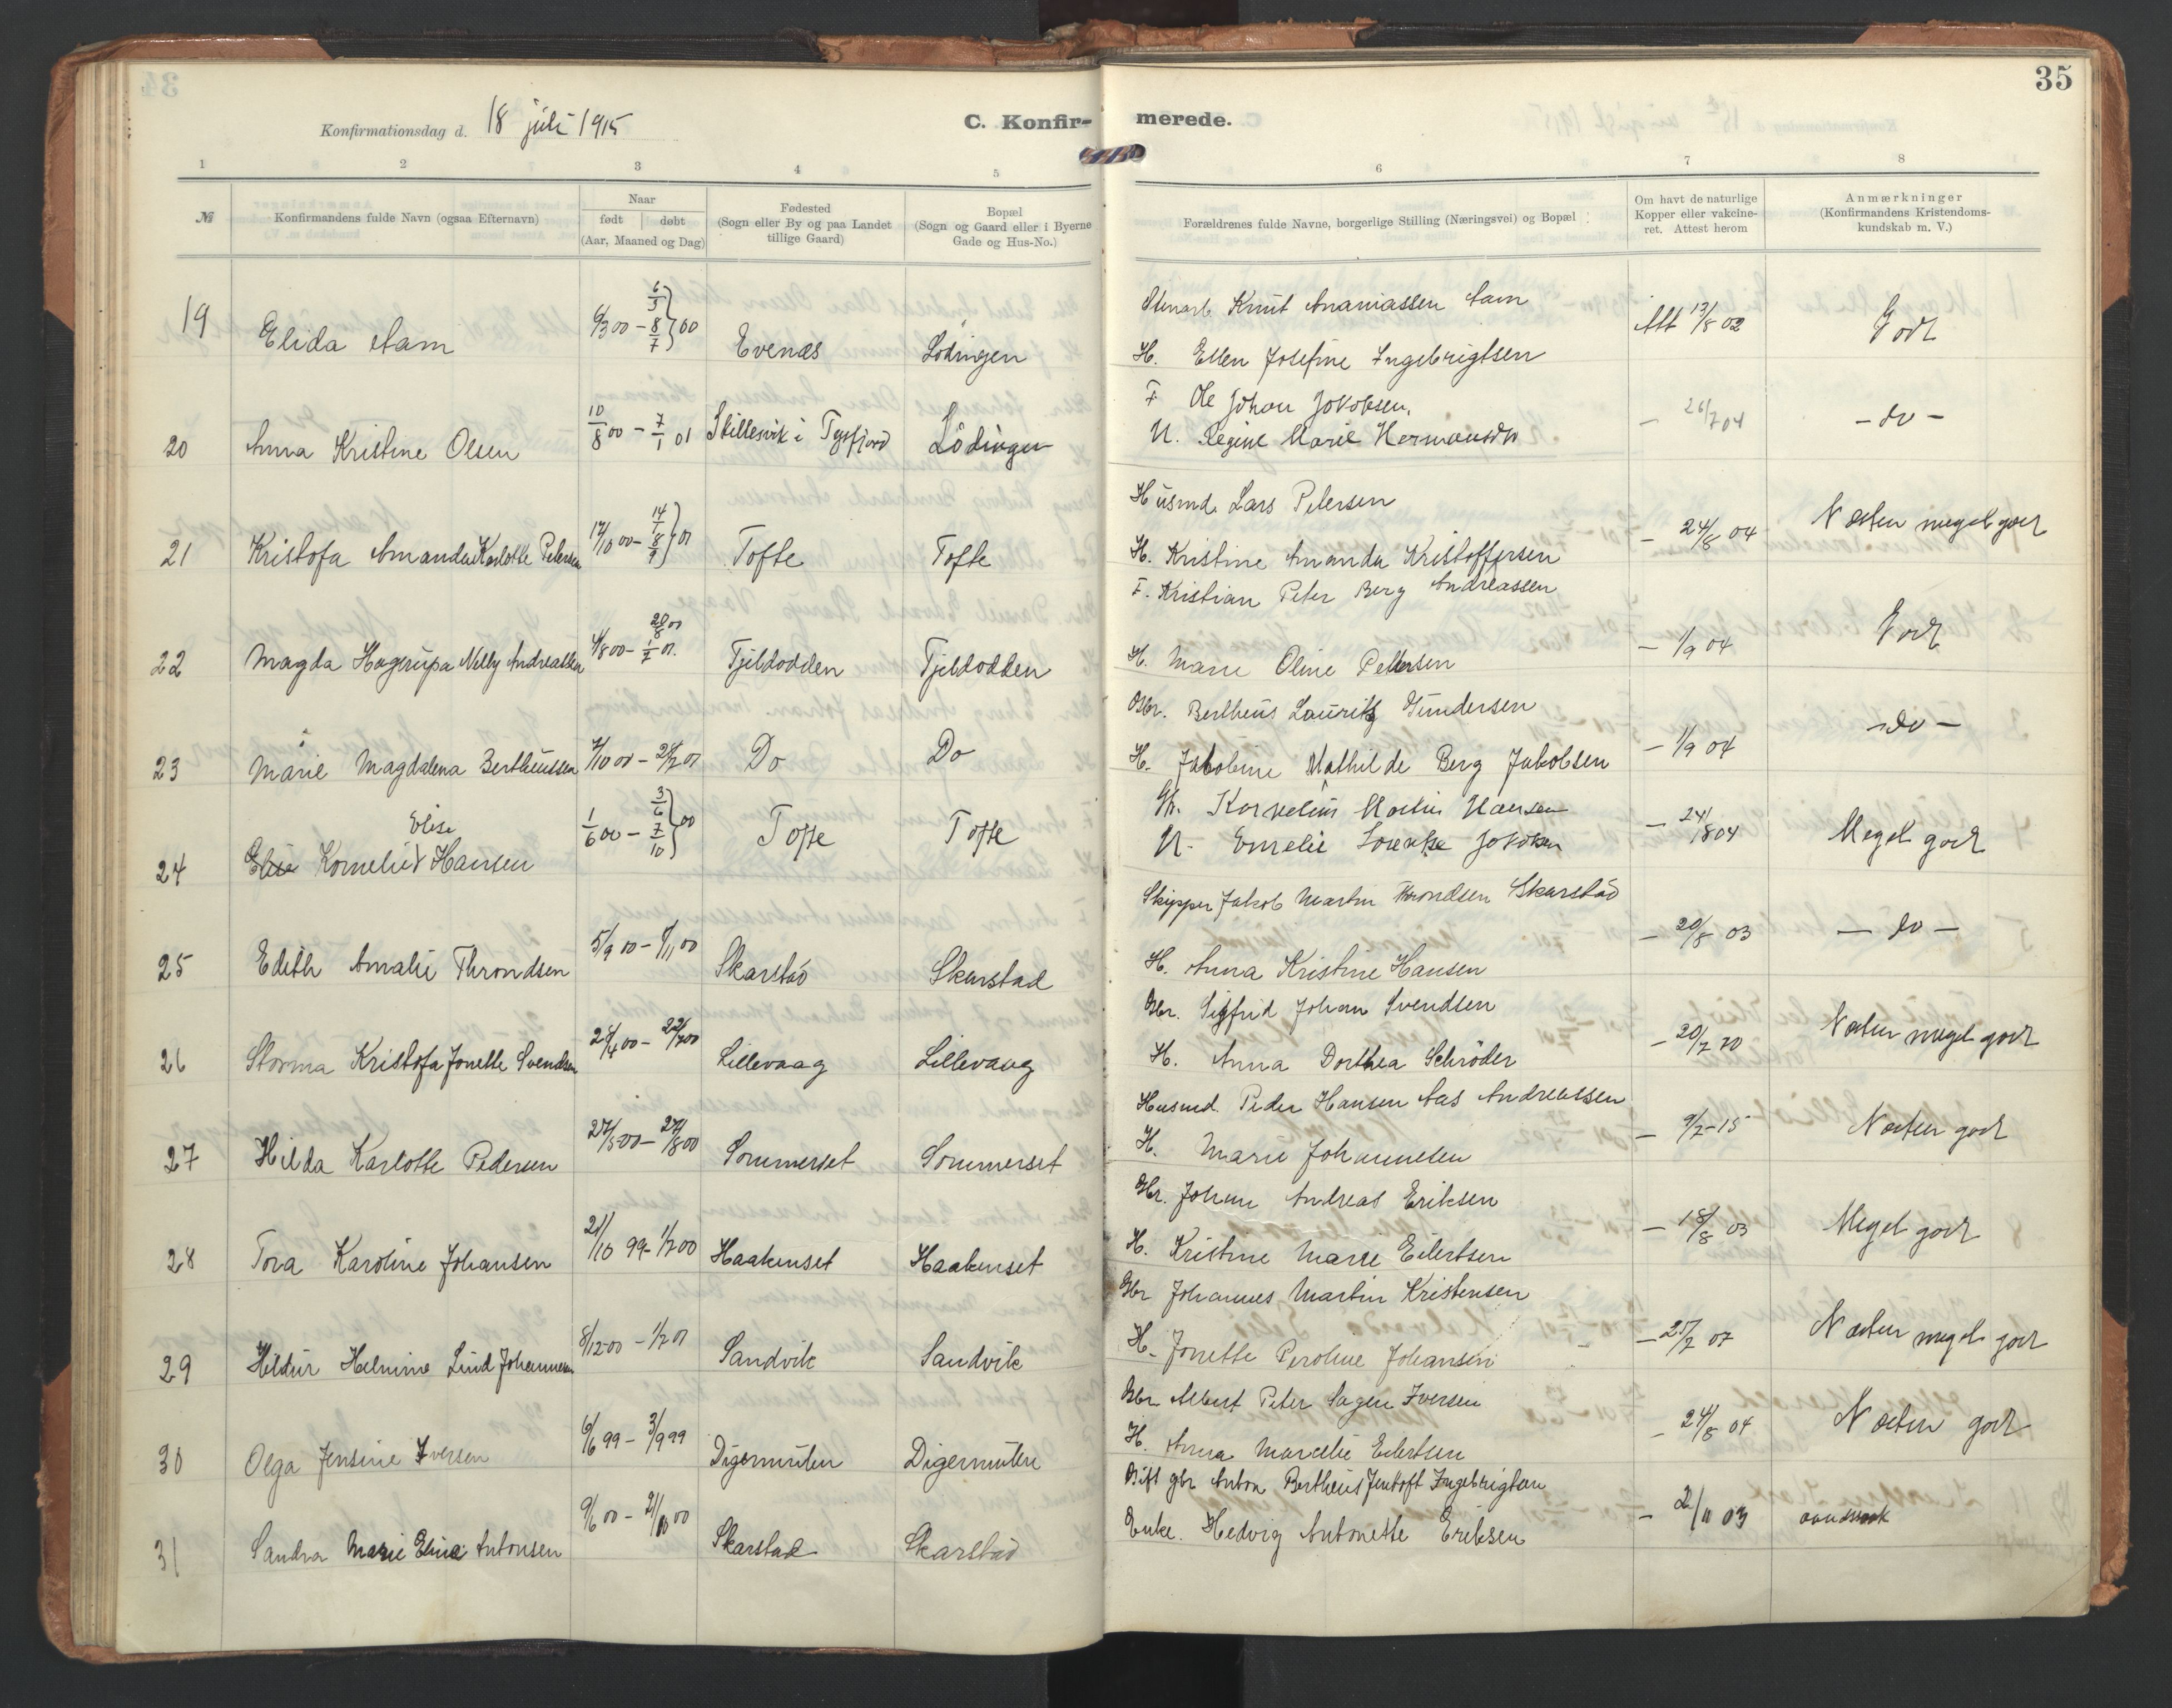 35
Konfirmationsdag d. 18 juli 1915
C. Konfir- merede.
1 2 3 4 5 6 7 8
№
Konfirmandens fulde Navn (ogsaa Efternavn)
Naar
født døbt
(Aar, Maaned og Dag)
Fødested
(Sogn eller By og paa Landet
tillige Gaard)
Bopæl
(Sogn og Gaard eller i Byerne
Gade og Hus-No.)
Forældrenes fulde Navne, borgerlige Stilling (Næringsvei) og Bopæl
Om havt de naturlige
Kopper eller vakcine-
ret. Attest herom
Anmærkninger
(Konfirmandens Kristendoms-
kundskab m. V.)
Knut Ananiassen Aam
19 Elida Aam 6/3 00 - 6/5 8/7 } 00 Evenæs Lødingen Att 13/8 02 Godt
H. Ellen Josefine Ingebrigtsen
F Ole Johan Jakobsen.
20 Anna Kristine Olsen 10/8 00 - 7/1 01 Skillesvik i Tysfjord Lödingen - 26/7 04 - do -
H. Regine Marie Hermansdtr
Husmd. Lars Petersen
21 Kristofa Amanda Karlotte Petersen 17/10 00 - 14/1 8/9 } 01 Tofte Tofte - 24/8 04 Næsten meget godt
H. Kristine Amanda Kristoffersen
F. Kristian Peter Berg Andreassen
22 Magda Hagerupa Nelly Andreassen 4/8 00 - 28/8 00 1/7 01. Tjeldodden Tjeldodden - 1/9 04 Godt
H. Marie Oline Pettersen
Gbr. Bertheus Lauritz Gundersen
23 Marie Magdalena Bertheussen 7/10 00 - 24/2 01 Do Do - 1/9 04 - do -
H. Jakobine Mathilde Berg Jakobsen
Kornelius Martin Hansen
Elise
24 Elise Kornelie Hansen 1/6 00 - 3/6 7/10 } 00 Tofte Tofte - 24/8 04 Meget godt
H. Emelie Lorentse Jakobsen
Skipper Jakob Martin Throndsen Skarstad
25 Edith Amalie Throndsen 5/9 00 - 4/11 00 Skarstad Skarstad - 20/8 03 - do -
H. Anna Kristine Hansen
Gbr. Sigfrid Johan Svendsen
26 Storma Kristofa Jonette Svendsen 24/4 00 - 22/7 00 Lillevaag Lillevaag - 20/7 10 Næsten meget godt
H. Anna Dorthea Schrøder
Husmd. Peder Hansen Aas Andreassen
27 Hilda Karlotte Pedersen 27/5 00 - 27/8 00 Sommerset Sommerset - 9/7 - 15 Næsten godt
H. Marie Johannesen
Gbr. Johan Andreas Eriksen
28 Tora Karoline Johansen 21/10 99 - 1/7 00 Haakenset Haakenset - 18/8 03 Meget godt
H. Kristine Marie Eilertsen
Gbr Johannes Martin Kristensen
29 Hildur Helmine Lind Johannesen 8/12 00 - 1/7 01 Sandvik Sandvik - 27/7 07 Næsten meget godt
H. Jonette Peroline Johansen
Gbr Albert Peter Sagen Iversen
30 Olga Jensine Iversen 6/6 99 - 3/9 99 Digermulen Digermulen - 24/8 04 Næsten godt
H. Anna Marcelie Eilertsen
Gift gbr Anton Bertheus Jentoft Ingebrigtsen
31 Sandra Marie Elise Antonsen 9/6 00 - 2/10 00 Skarstad Skarstad - 2/11 03 aandssvak
Enke. Hedvig Antonette Eriksen